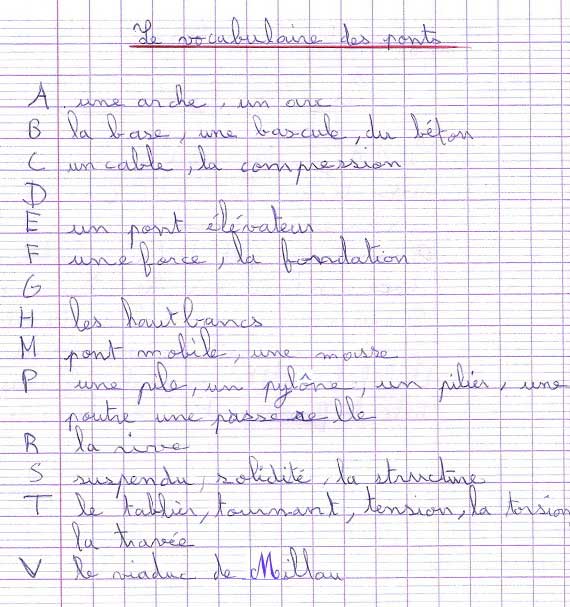 Le vocabulaire des ponts
A une arche, un arc
B la base, une bascule, du béton
C un cable, la compression
D
E un pont élévateur
F une force, la fondation
G
H les hautbancs
M pont mobile, une masse
P une pile, un pylône, un pilier, une
poutre une passerelle
R la rive
S suspendu, solidité, la structure
T le tablier, tournant, tension, la torsion
la travée
V le viaduc de Millau